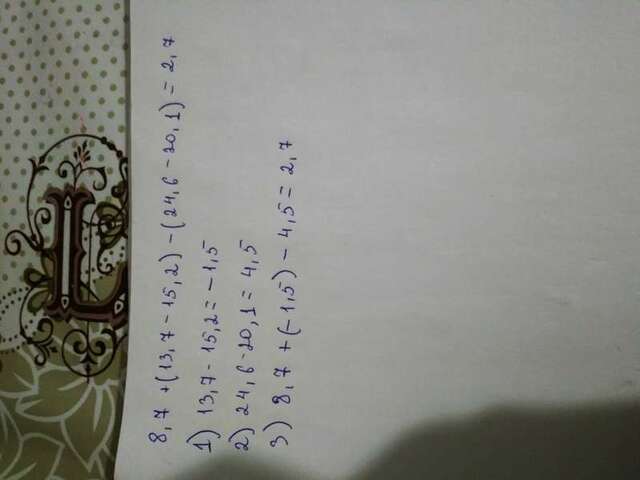 8,7 +(13,7-15,2) -(24,6-20,1)= 2,7
1) 13,7-15,2=-1,5
2) 24,6-20,1= 4,5
3) 8,7 +(-1,5) - 4,5= 2,7